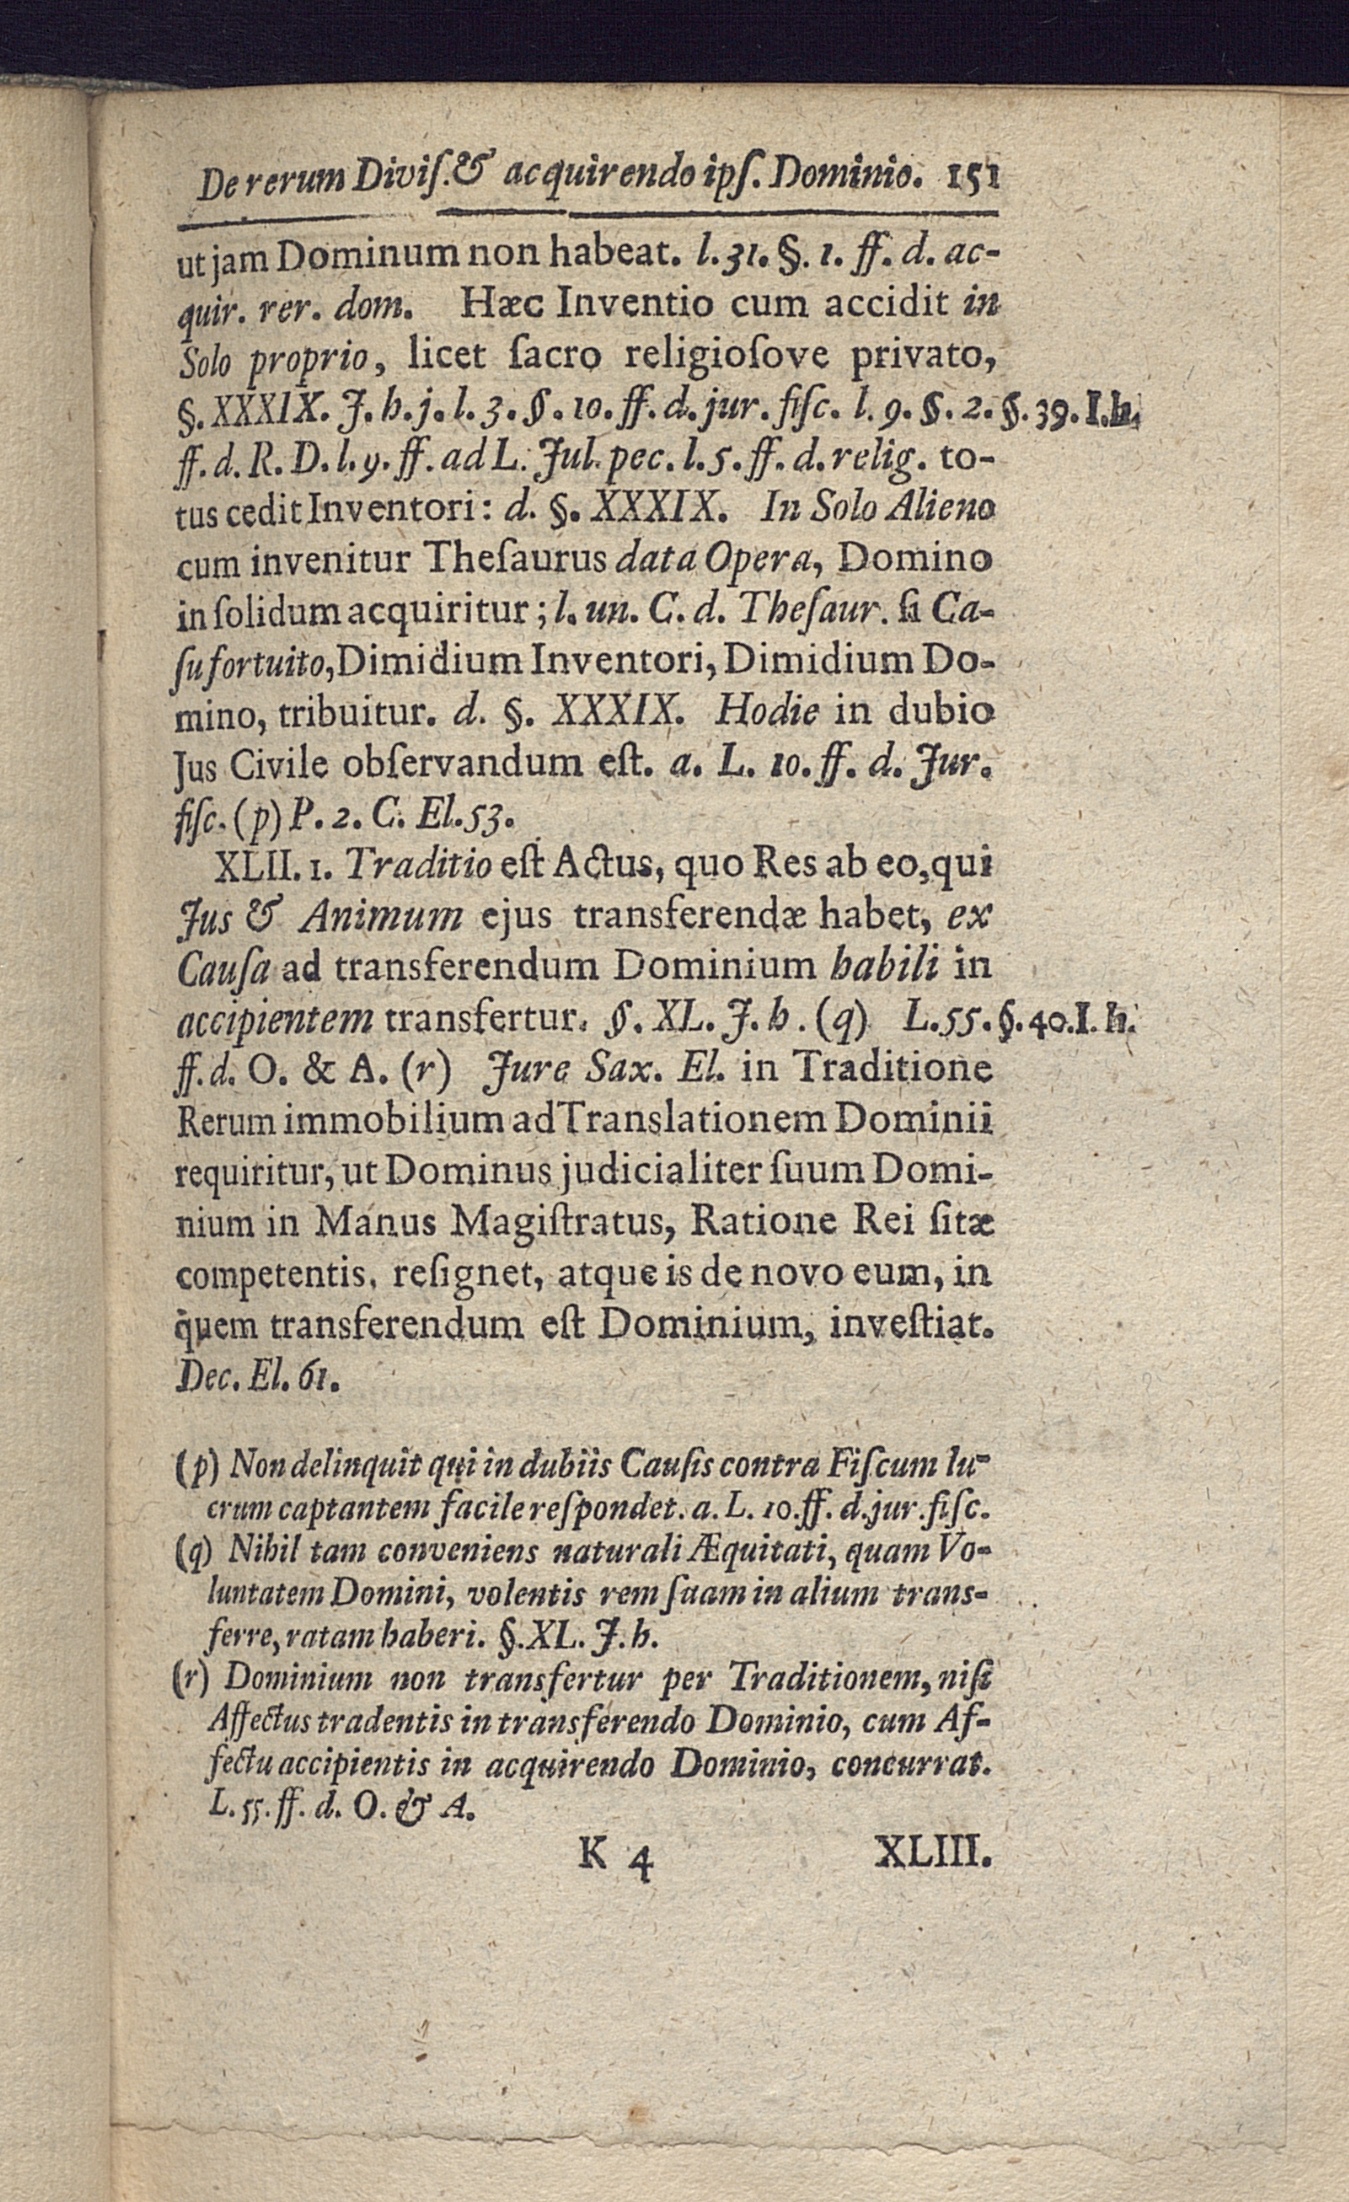 De rerum Diviſ. & acquirendo ipſ. Dominio. 151
ut jam Dominum non habeat. l. 31. §. 1. ff. d. ac-
quir. rer. dom. Hæc Inventio cum accidit in
Solo proprio, licet ſacro religioſove privato,
§. XXXIX. J. h. j. l. 3. §. 10. ff. d. jur. fiſc. l. 9. §. 2. §. 39. I. h.
ff. d. R. D. l. 9. ff. ad L. Jul. pec. l. 5. ff. d. relig. to-
tus cedit Inventori: d. §. XXXIX. In Solo Alieno
cum invenitur Theſaurus data Opera, Domino
in ſolidum acquiritur; l. un. C. d. Theſaur. ſi Ca-
ſu fortuito, Dimidium Inventori, Dimidium Do-
mino, tribuitur. d. §. XXXIX. Hodie in dubio
Jus Civile obſervandum eſt. a. L. 10. ff. d. Jur.
fiſc. (p) P. 2. C. El. 53.
XLII. 1. Traditio eſt Actus, quo Res ab eo, qui
Jus & Animum ejus transferendæ habet, ex
Cauſa ad transferendum Dominium habili in
accipientem transfertur. §. XL. J. h. (q) L. 55. §. 40. I. h.
ff. d. O. & A. (r) Jure Sax. El. in Traditione
Rerum immobilium ad Translationem Dominii
requiritur, ut Dominus judicialiter ſuum Domi-
nium in Manus Magiſtratus, Ratione Rei ſitæ
competentis, reſignet, atque is de novo eum, in
quem transferendum eſt Dominium, inveſtiat.
Dec. El. 61.
(p) Non delinquit qui in dubiis Cauſis contra Fiſcum lu-
crum captantem facile reſpondet. a. L. 10. ff. d. jur. fiſc.
(q) Nihil tam conveniens naturali Æquitati, quam Vo-
luntatem Domini, volentis rem ſuam in alium trans-
ferre, ratam haberi. §. XL. J. h.
(r) Dominium non transfertur per Traditionem, niſi
Affectus tradentis in transferendo Dominio, cum Af-
fectu accipientis in acquirendo Dominio, concurrat.
L. 55. ff. d. O. & A.
K 4 XLIII.